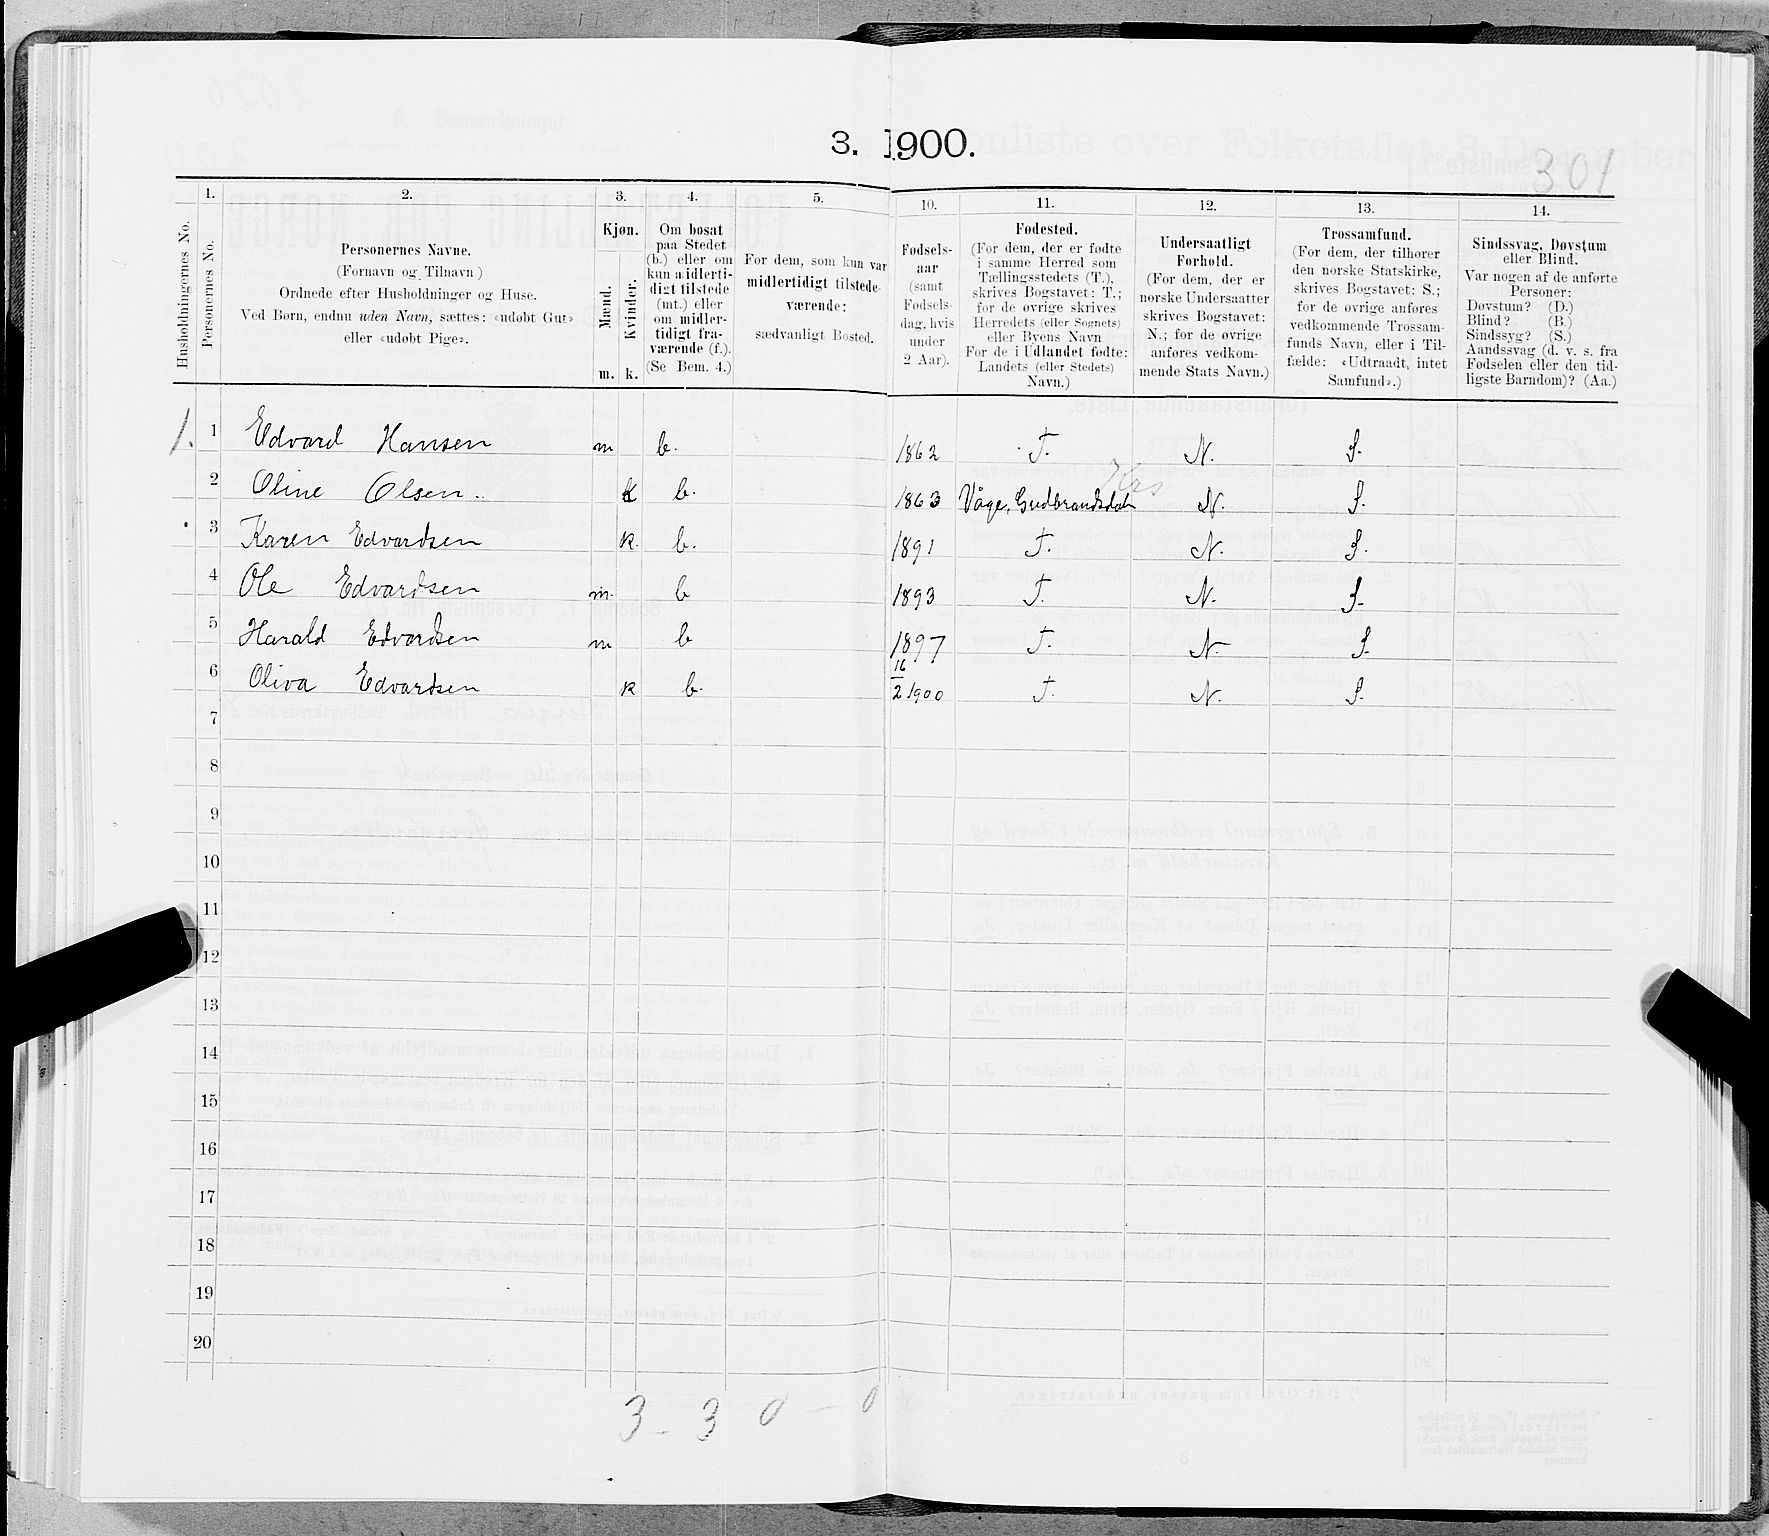 3. 1900.
301
1. 2. 3. 4. 5. 10. 11. 12. 13. 14.
Husholdningernes No.
Personernes No.
Personernes Navne.
(Fornavn og Tilnavn)
Ordnede efter Husholdninger og Huse.
Ved Børn, endnu uden Navn, sættes: «udøbt Gut»
eller «udøbt Pige».
Kjøn.
Mænd.
Kvinder.
m. k.
Om bosat
paa Stedet
(b.) eller om
kun midlerti-
digt tilstede
(mt.) eller
om midler-
tidigt fra-
værende (f.).
(Se Bem. 4.)
For dem, som kun var
midlertidigt tilstede-
værende:
sædvanligt Bosted.
Fødsels-
aar
(samt
Fødsels-
dag, hvis
under
2 Aar).
Fødested.
(For dem, der er fødte
i samme Herred som
Tællingsstedets (T.),
skrives Bogstavet: T.;
for de øvrige skrives
Herredets (eller Sognets)
eller Byens Navn
For de i Udlandet fødte:
Landets (eller Stedets)
Navn.)
Undersaatligt
Forhold.
(For dem, der er
norske Undersaatter
skrives Bogstavet:
N.; for de øvrige
anføres vedkom-
mende Stats Navn.)
Trossamfund.
(For dem, der tilhører
den norske Statskirke,
skrives Bogstavet: S.;
for de øvrige anføres
vedkommende Trossam-
funds Navn, eller i Til-
fælde: «Udtraadt, intet
Samfund».)
Sindssvag, Døvstum
eller Blind.
Var nogen af de anførte
Personer:
Døvstum? (D.)
Blind? (B.)
Sindssyg? (S.)
Aandssvag (d. v. s. fra
Fødselen eller den tid-
ligste Barndom)? (Aa.)
1. 1 Edvard Hansen m b. 1862 T. N. S.
2 Oline Olsen. k b. 1863 Våge, Gudbrandsdal N. S.
3 Karen Edvardsen k. b. 1891 T. N. S.
4 Ole Edvardsen m. b 1893 T. N. S.
5 Harald Edvardsen m b 1897 T. N. S.
6 Oliva Edvardsen k b. 16/2 1900 T. N. S.
7
8
9
10
11
12
13
14
15
16
17
18
19
20
3 - 3 0 - 0